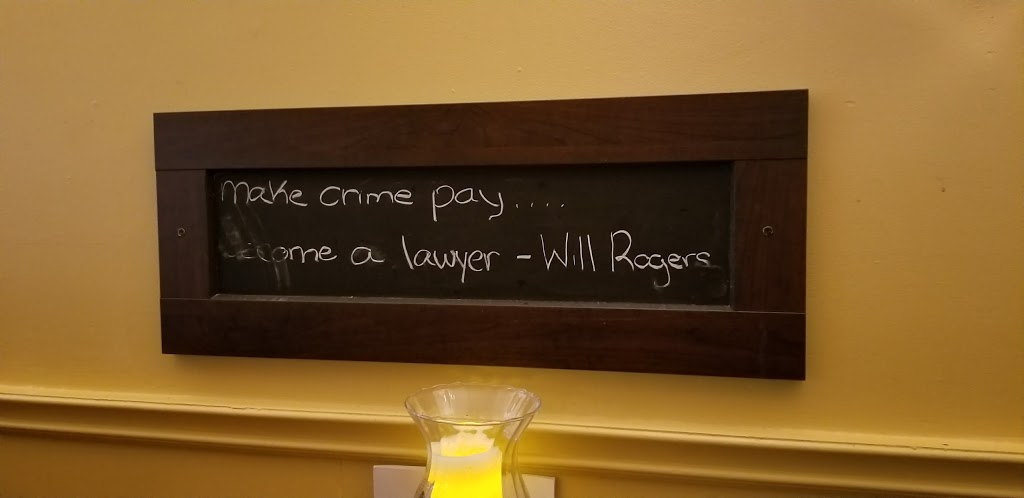 Make crime pay....
become a lawyer - Will Rogers